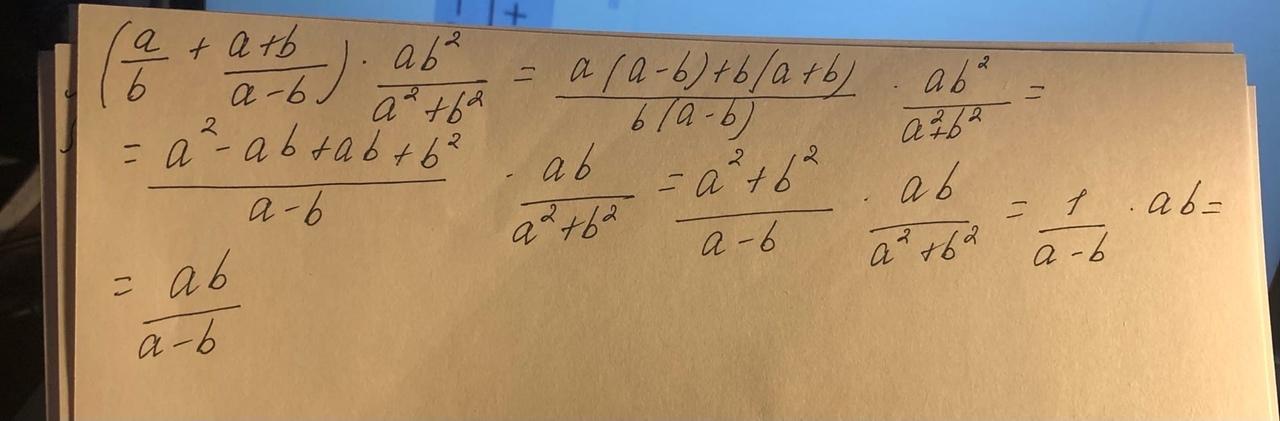 (a/b + a+b/a-b) · ab²/a²+b² = a(a-b)+b(a+b)/b(a-b) · ab²/a²+b² =
= a²-ab+ab+b²/a-b · ab/a²+b² = a²+b²/a-b · ab/a²+b² = 1/a-b · ab =
= ab/a-b